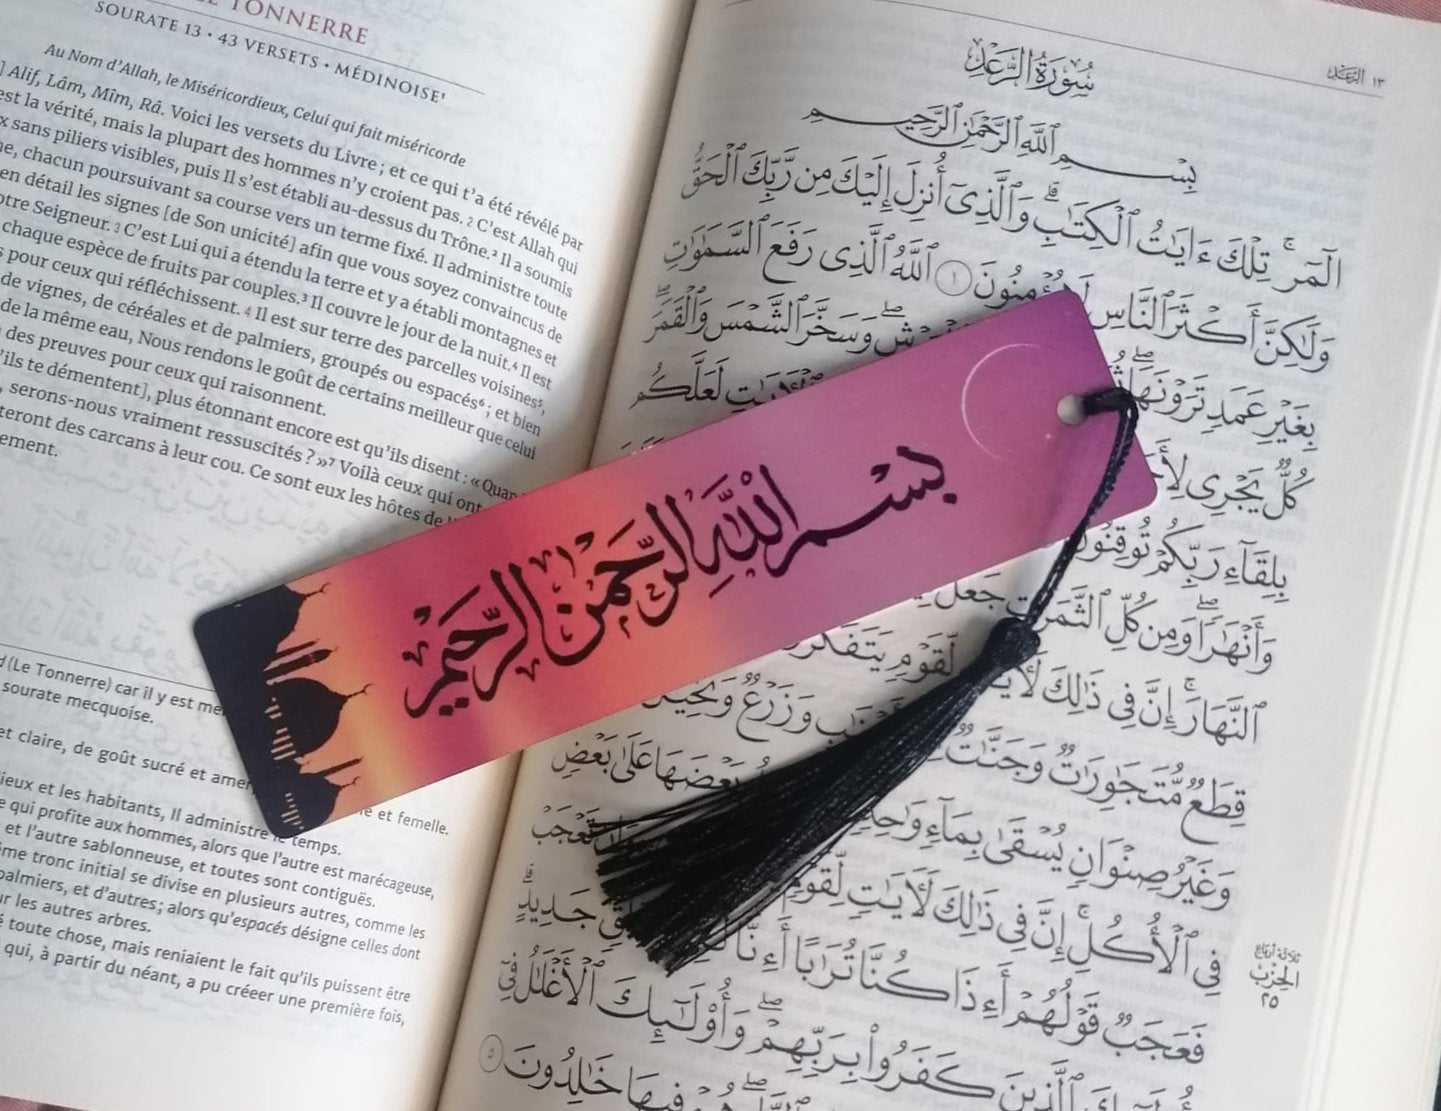 LE TONNERRE
SOURATE 13 • 43 VERSETS • MÉDINOISE¹
Au Nom d'Allah, le Miséricordieux, Celui qui fait miséricorde
Alif, Lâm, Mîm, Râ. Voici les versets du Livre ; et ce qui t'a été révélé par
est la vérité, mais la plupart des hommes n'y croient pas. 2 C'est Allah qui
sans piliers visibles, puis Il s'est établi au-dessus du Trône.² Il a soumis
chacun poursuivant sa course vers un terme fixé. Il administre toute
en détail les signes [de Son unicité] afin que vous soyez convaincus de
otre Seigneur. 3 C'est Lui qui a étendu la terre et y a établi montagnes et
chaque espèce de fruits par couples.³ Il couvre le jour de la nuit.⁴ Il est
pour ceux qui réfléchissent. 4 Il est sur terre des parcelles voisines⁵,
de vignes, de céréales et de palmiers, groupés ou espacés⁶ ; et bien
de la même eau, Nous rendons le goût de certains meilleur que celui
des preuves pour ceux qui raisonnent.
'ils te démentent], plus étonnant encore est qu'ils disent : « Quan
serons-nous vraiment ressuscités ? »⁷ Voilà ceux qui ont
teront des carcans à leur cou. Ce sont eux les hôtes de
ement.
(Le Tonnerre) car il y est me
sourate mecquoise.
et claire, de goût sucré et amer
et femelle.
ieux et les habitants, Il administre le temps.
qui profite aux hommes, alors que l'autre est marécageuse,
et l'autre sablonneuse, et toutes sont contiguës.
me tronc initial se divise en plusieurs autres, comme les
palmiers, et d'autres ; alors qu'espacés désigne celles dont
ur les autres arbres.
toute chose, mais reniaient le fait qu'ils puissent être
qui, à partir du néant, a pu créer une première fois,
بسم الله الرحمن الرحيم
١٣ الرَّعْد
سُورَةُ الرَّعْدِ
بِسْمِ ٱللَّهِ ٱلرَّحْمَٰنِ ٱلرَّحِيمِ
الٓمٓرۚ تِلْكَ ءَايَٰتُ ٱلْكِتَٰبِۗ وَٱلَّذِىٓ أُنزِلَ إِلَيْكَ مِن رَّبِّكَ ٱلْحَقُّ
وَلَٰكِنَّ أَكْثَرَ ٱلنَّاسِ لَا يُؤْمِنُونَ ١ ٱللَّهُ ٱلَّذِى رَفَعَ ٱلسَّمَٰوَٰتِ
بِغَيْرِ عَمَدٍ تَرَوْنَهَاۖ وَسَخَّرَ ٱلشَّمْسَ وَٱلْقَمَرَۖ
كُلٌّ يَجْرِى لَعَلَّكُم
بِلِقَآءِ رَبِّكُمْ تُوقِنُونَ
وَأَنْهَٰرًاۖ وَمِن كُلِّ ٱلثَّمَرَٰتِ جَعَلَ
ٱلنَّهَارَۚ إِنَّ فِى ذَٰلِكَ لَءَايَٰتٍ لِّقَوْمٍ يَتَفَكَّرُونَ
قِطَعٌ مُّتَجَٰوِرَٰتٌ وَجَنَّٰتٌ وَزَرْعٌ وَنَخِيلٌ
وَغَيْرُ صِنْوَانٍ يُسْقَىٰ بِمَآءٍ وَٰحِدٍ بَعْضَهَا عَلَىٰ بَعْضٍ
فِى ٱلْأُكُلِۚ إِنَّ فِى ذَٰلِكَ لَءَايَٰتٍ لِّقَوْمٍ تَعْجَبْ
فَعَجَبٌ قَوْلُهُمْ أَءِذَا كُنَّا تُرَٰبًا أَءِنَّا جَدِيدٍ
كَفَرُوا۟ بِرَبِّهِمْۖ وَأُو۟لَٰٓئِكَ ٱلْأَغْلَٰلُ فِىٓ
ٱلَّذِينَ فِيهَا خَٰلِدُونَ ٥
ثلاثة أرباع
الحِزْب
٢٥